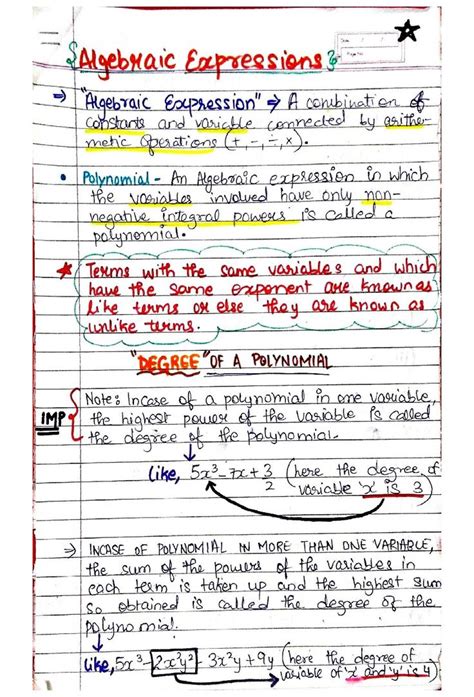 {Algebraic Expressions}
⇒ "Algebraic Expression" ⇒ A combination of
constants and variable, connected by arithe-
metic operations (+, -, ÷, ×).
• Polynomial - An Algebraic expression in which
the variables involved have only non-
negative integral powers is called a
polynomial.
★ Terms with the same variables and which
have the same exponent are known as
like terms or else they are known as
unlike terms.
"DEGREE" OF A POLYNOMIAL
Note: Incase of a polynomial in one variable,
IMP the highest power of the variable is called
the degree of the polynomial.
like, 5x³-7x+3/2 (here the degree of
variable 'x' is 3)
⇒ INCASE OF POLYNOMIAL IN MORE THAN ONE VARIABLE,
the sum of the powers of the variables in
each term is taken up and the highest sum
so obtained is called the degree of the
polynomial.
like, 5x³-2x²y²-3x²y+9y (here the degree of
variable of 'x' and 'y' is 4)